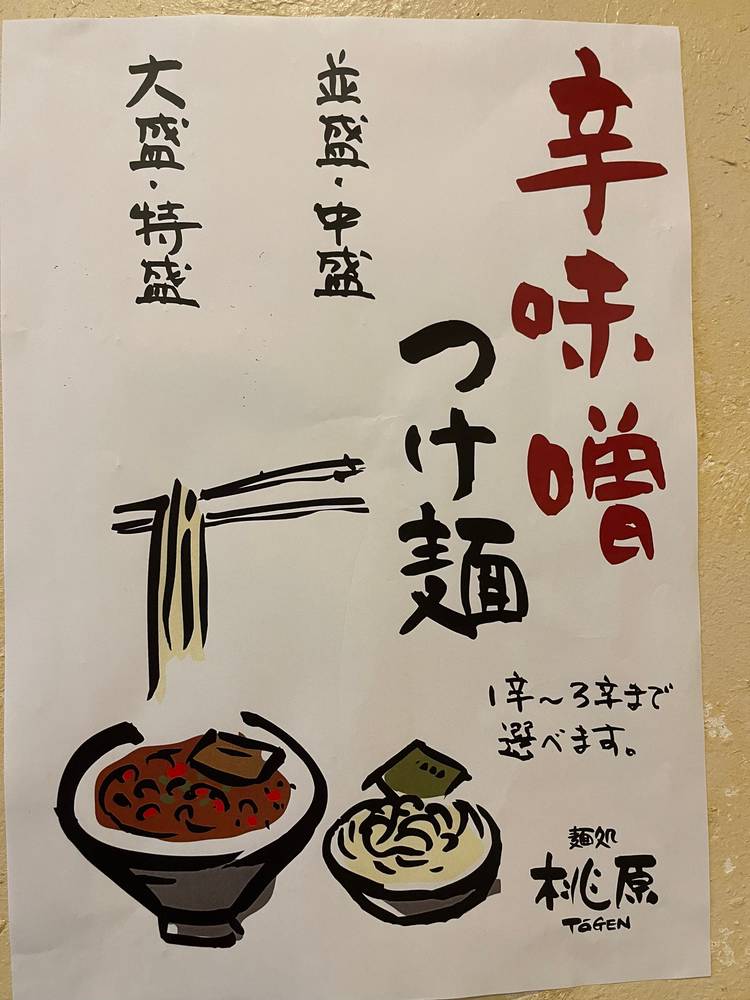 辛味噌
つけ麺
並盛・中盛
大盛・特盛
1辛〜3辛まで
選べます。
麺処
桃原
TōGEN